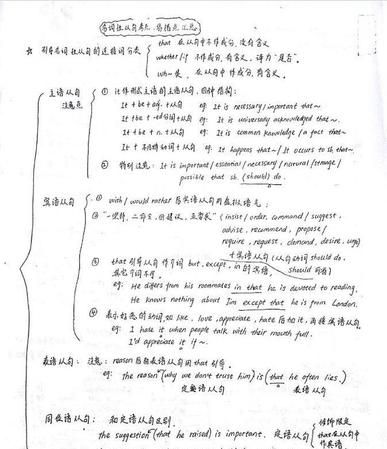 名词性从句考点、易错点汇总
☆ 引导名词性从句的连接词分类
that 在从句中不作成分,没有含义
whether/if 不作成分,有含义,译为"是否"。
wh~类 在从句中作成分,有含义。
主语从句
注意点
① it 作形式主语的主语从句,四种结构:
It + be + adj. + 从句 eg: It is necessary/important that~
It + be + -ed分词 + 从句 eg: It is universally acknowledged that~.
It + be + n. + 从句 eg: It is common knowledge / a fact that~
It + 不及物动词 + 从句 eg: It happens that~/ It occurs to sb. that~.
② 特别注意: It is important/essential/necessary/natural/strange/
possible that sb. (should) do.
宾语从句
① wish/would rather 后宾语从句用虚拟语气;
② "一坚持,二命令,四建议,五要求" (insist/order, command/suggest,
advise, recommend, propose/
require, request, demand, desire, urge)
+ 宾语从句 (从句动词 should do,
should 可省)
③ that 引导从句作介词 but, except, in 的宾语,
其它介词不用。
eg: He differs from his roommates in that he is devoted to reading.
He knows nothing about Jim except that he is from London.
④ 表示好恶的动词,如 like, love, appreciate, hate 后加it,再接宾语从句
eg: I hate it when people talk with their mouth full.
I'd appreciate it if~.
表语从句: 注意: reason 后接表语从句用 that 引导。
eg: The reason (why we don't trust him) is (that he often lies.)
定语从句 表语从句
同位语从句: 和定语从句区别.
the suggestion (that he raised) is important. 定语从句
修饰限定
that在从句中
作宾语